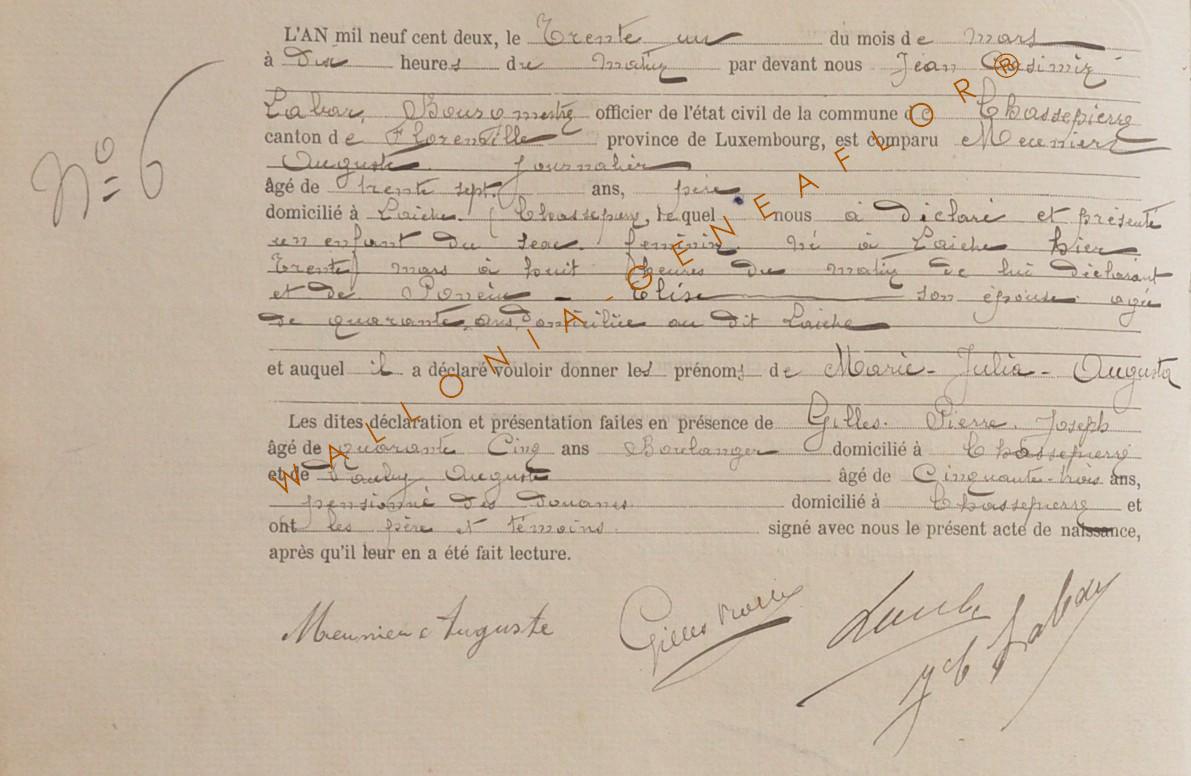 L'AN mil neuf cent deux, le Trente un du mois de mars
à Dix heures du matin par devant nous Jean Casimir
Labar, Bourgmestre officier de l'état civil de la commune de Chassepierre
canton de Florenville province de Luxembourg, est comparu
Auguste journalier
âgé de trente sept ans, père
domicilié à Laiche (Chassepierre, lequel nous a déclaré et présenté
un enfant du sexe féminin né à Laiche hier
Trente mars à huit heures du matin de lui déclarant
et de Poncin - Elise son épouse agée
de quarante ans domiciliée au dit Laiche
et auquel il a déclaré vouloir donner les prénoms de Marie - Julia - Augusta
Les dites déclaration et présentation faites en présence de Gilles Pierre Joseph
âgé de quarante Cinq ans Boulanger domicilié à Chassepierre
et de Auguste âgé de Cinquante-trois ans,
pensionné des douanes domicilié à Chassepierre et
ont les père et témoins signé avec nous le présent acte de naissance,
après qu'il leur en a été fait lecture.
N° 6
Meunier Auguste
Gilles
WALLONIA-GENEAFLOR®